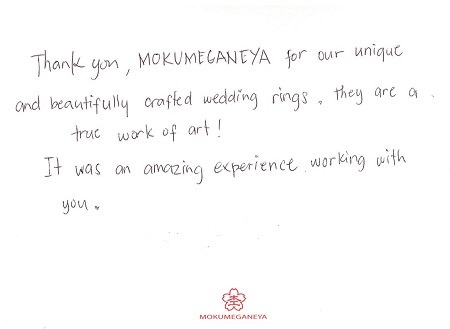 Thank you, MOKUMEGANEYA for our unique
and beautifully crafted wedding rings. they are a
true work of art!
It was an amazing experience working with
you.
MOKUMEGANEYA